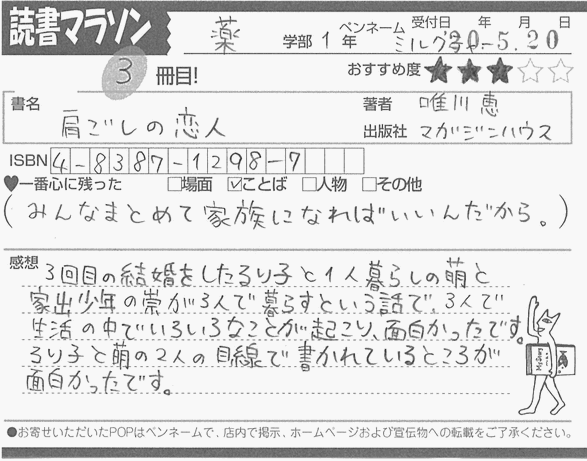 読書マラソン
薬 学部 1 年
ペンネーム 受付日 年 月 日
ミルクティー 20-5.20
3 冊目!
おすすめ度 ★★★☆☆
書名 肩ごしの恋人
著者 唯川 恵
出版社 マガジンハウス
ISBN 4-8387-1298-7
♥一番心に残った □場面 ☑ことば □人物 □その他
(みんなまとめて家族になればいいんだから。)
感想
3回目の結婚をしたるり子と1人暮らしの萌と
家出少年の崇が3人で暮すという話で、3人で
生活の中でいろいろなことが起こり、面白かったです。
るり子と萌の2人の目線で書かれているところが
面白かったです。
●お寄せいただいたPOPはペンネームで、店内で掲示、ホームページおよび宣伝物への転載をご了承ください。